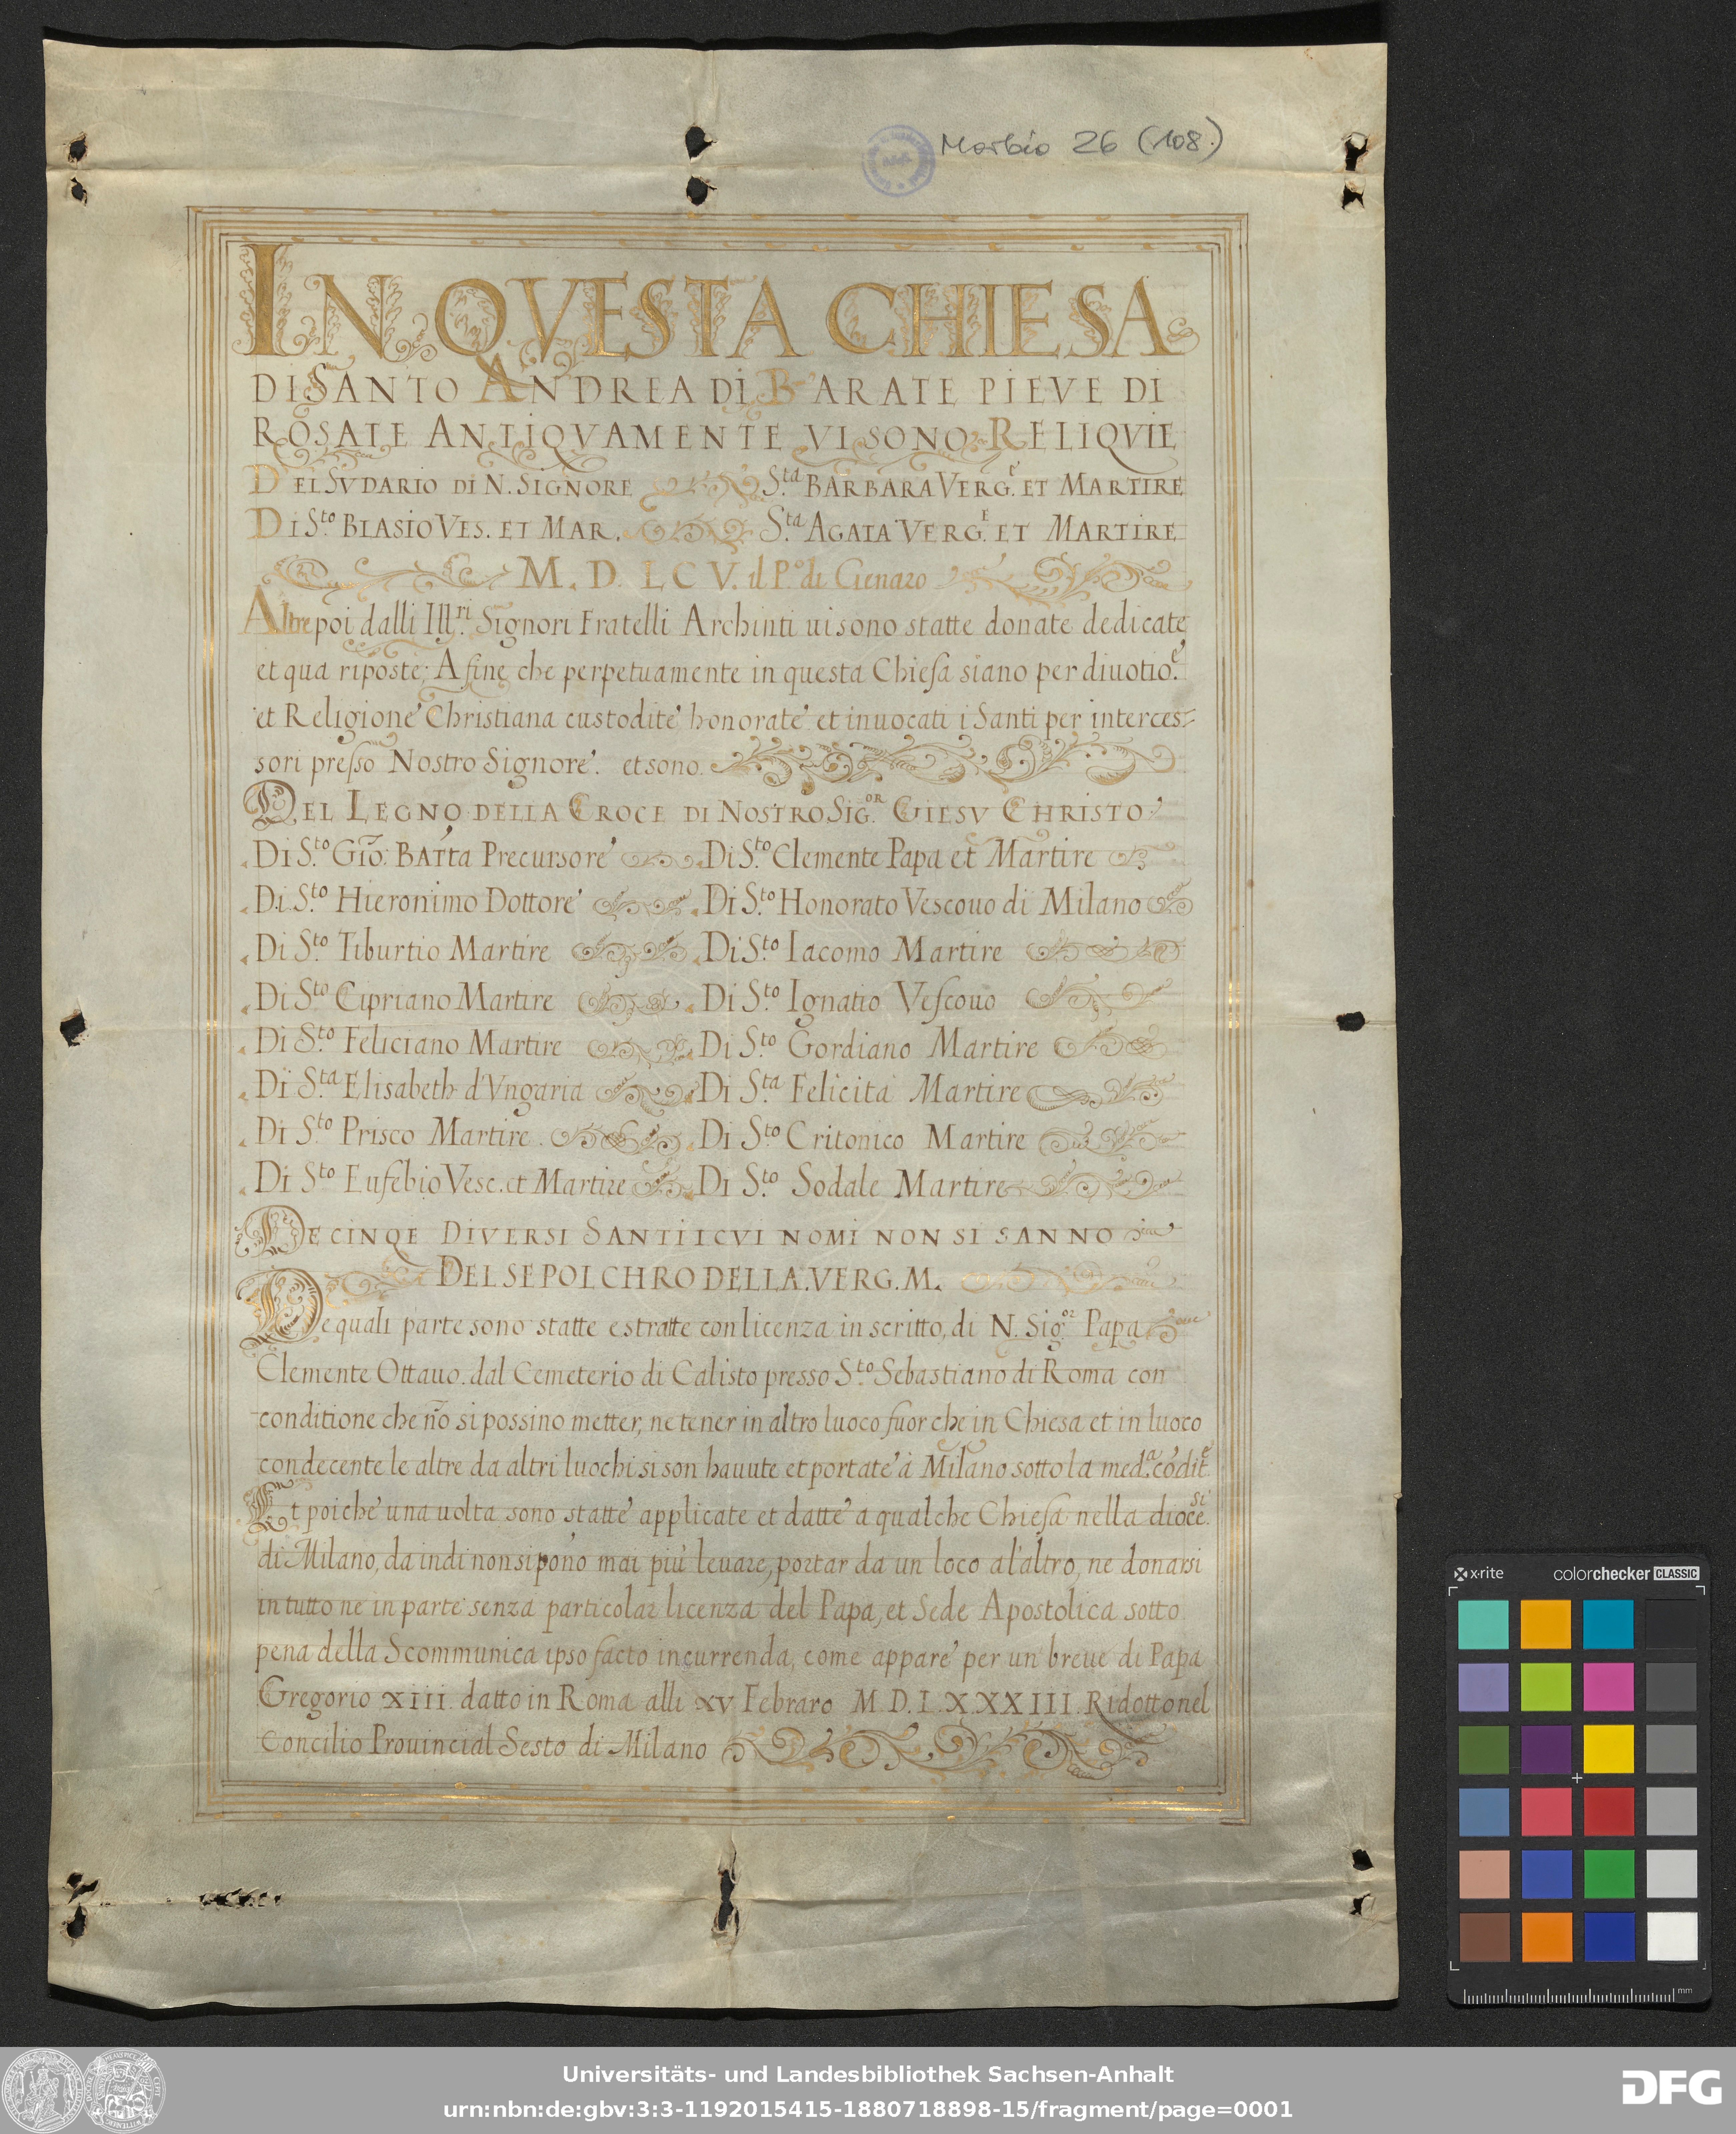 Morbio 26 (108.)
IN QVESTA CHIESA
DI SANTO ANDREA DI BARATE PIEVE DI
ROSATE ANTIQVAMENTE VI SONO RELIQVIE
DEL SVDARIO DI N. SIGNORE S.ta BARBARA VERG.e ET MARTIRE
DI S.to BLASIO VES. ET MAR. S.ta AGATA VERG.E ET MARTIRE
M. D. LCV. il P.o di Genaro
Altre poi dalli Ill.ri Signori Fratelli Archinti ui sono statte donate dedicate
et qua riposte; A fine che perpetuamente in questa Chiesa siano per diuotio.e
et Religione Christiana custodite honorate et inuocati i Santi per interces=
sori presso Nostro Signore. et sono.
DEL LEGNO DELLA CROCE DI NOSTRO SIG.OR GIESV CHRISTO
Di S.to Gio: BATta Precursore Di S.to Clemente Papa et Martire
Di S.to Hieronimo Dottore Di S.to Honorato Vescouo di Milano
Di S.to Tiburtio Martire Di S.to Iacomo Martire
Di S.to Cipriano Martire Di S.to Ignatio Vescouo
Di S.to Feliciano Martire Di S.to Gordiano Martire
Di S.ta Elisabeth d'Vngaria Di S.ta Felicita Martire
Di S.to Prisco Martire. Di S.to Critonico Martire
Di S.to Eusebio Vesc. et Martire Di S.to Sodale Martire
DE CINQE DIVERSI SANTI I CVI NOMI NON SI SANNO
DEL SEPOLCHRO DELLA. VERG. M.
De quali parte sono statte estratte con licenza in scritto, di N. Sig.or Papa
Clemente Ottauo. dal Cemeterio di Calisto presso S.to Sebastiano di Roma con
conditione che nõ si possino metter, ne tener in altro luoco fuor che in Chiesa et in luoco
condecente le altre da altri luochi si son hauute et portate à Milano sotto la med.a cõdit.e
Et poiche una uolta sono statte applicate et datte a qualche Chiesa nella dioce.si
di Milano, da indi non si põno mai più leuare, portar da un loco a l'altro, ne donarsi
in tutto ne in parte senza particolar licenza del Papa, et Sede Apostolica sotto
pena della Scommunica ipso facto incurrenda, come appare per un breue di Papa
Gregorio XIII. datto in Roma alli XV Febraro M.D.LXXXIII. Ridotto nel
Concilio Prouincial Sesto di Milano
x-rite colorchecker CLASSIC
mm
Universitäts- und Landesbibliothek Sachsen-Anhalt
urn:nbn:de:gbv:3:3-1192015415-1880718898-15/fragment/page=0001
DFG